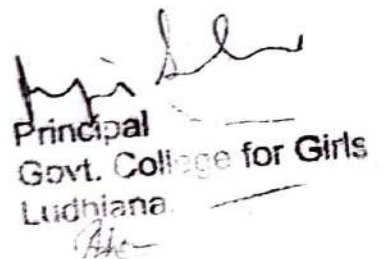 Principal
Govt. College for Girls
Ludhiana.